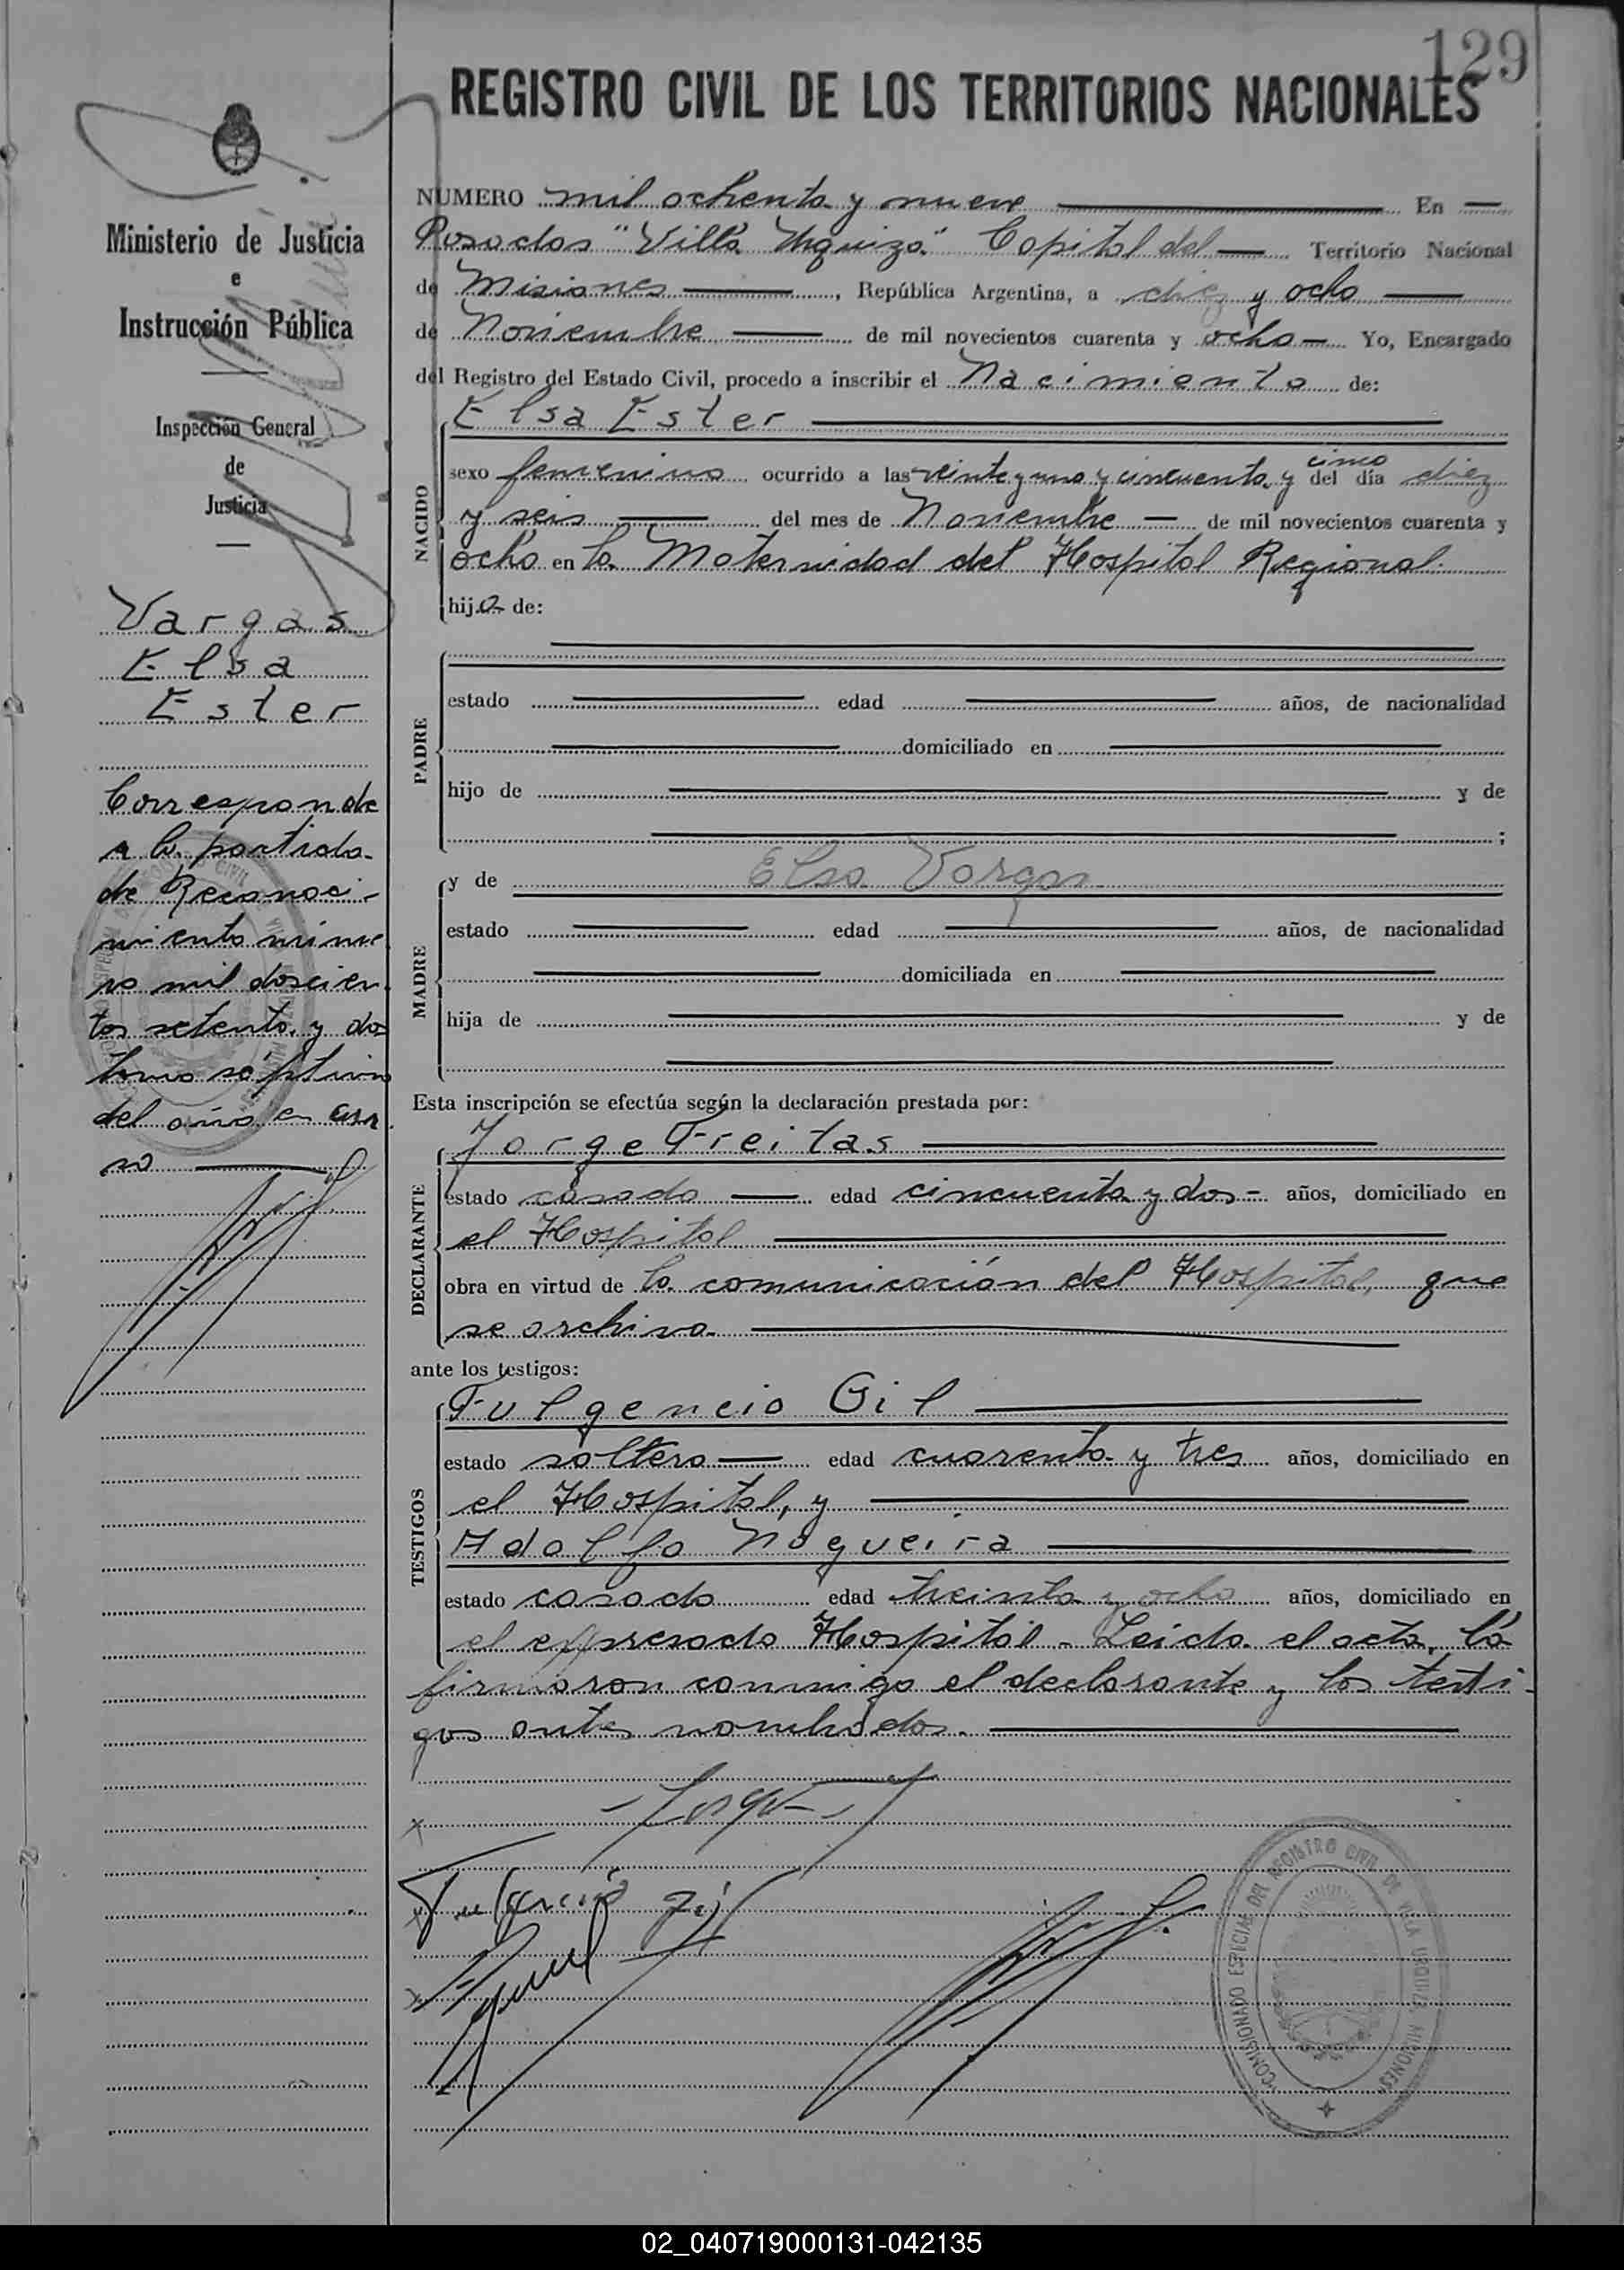 129
REGISTRO CIVIL DE LOS TERRITORIOS NACIONALES
NUMERO mil ochenta y nueve En
Posadas "Villa Urquiza" Capital del Territorio Nacional
de Misiones, República Argentina, a diez y ocho
de Noviembre de mil novecientos cuarenta y ocho Yo, Encargado
del Registro del Estado Civil, procedo a inscribir el Nacimiento de:
NACIDO
Elsa Ester
sexo femenino ocurrido a las veinte y una y cincuenta y cinco del día diez
y seis del mes de Noviembre de mil novecientos cuarenta y
ocho en la Maternidad del Hospital Regional
hija de:
PADRE
estado edad años, de nacionalidad
domiciliado en
hijo de y de
;
MADRE
y de Elsa Vargas
estado edad años, de nacionalidad
domiciliada en
hija de y de
Esta inscripción se efectúa según la declaración prestada por:
DECLARANTE
Jorge Freitas
estado casado edad cincuenta y dos años, domiciliado en
el Hospital
obra en virtud de la comunicación del Hospital, que
se archiva.
ante los testigos:
TESTIGOS
Fulgencio Gil
estado soltero edad cuarenta y tres años, domiciliado en
el Hospital, y
Adolfo Nogueira
estado casado edad treinta y ocho años, domiciliado en
el expresado Hospital - Leída el acta, la
firmaron conmigo el declarante y los testi-
gos antes nombrados.
Fulgencio Gil
COMISIONADO ESPECIAL DEL REGISTRO CIVIL DE VILLA URQUIZA MISIONES
Ministerio de Justicia
e
Instrucción Pública
Inspección General
de
Justicia
Vargas
Elsa
Ester
Corresponde
a la partida
de Reconoci-
miento núme
ro mil doscien
tos setenta y dos
tomo séptimo
del año en cur
so
02_040719000131-042135